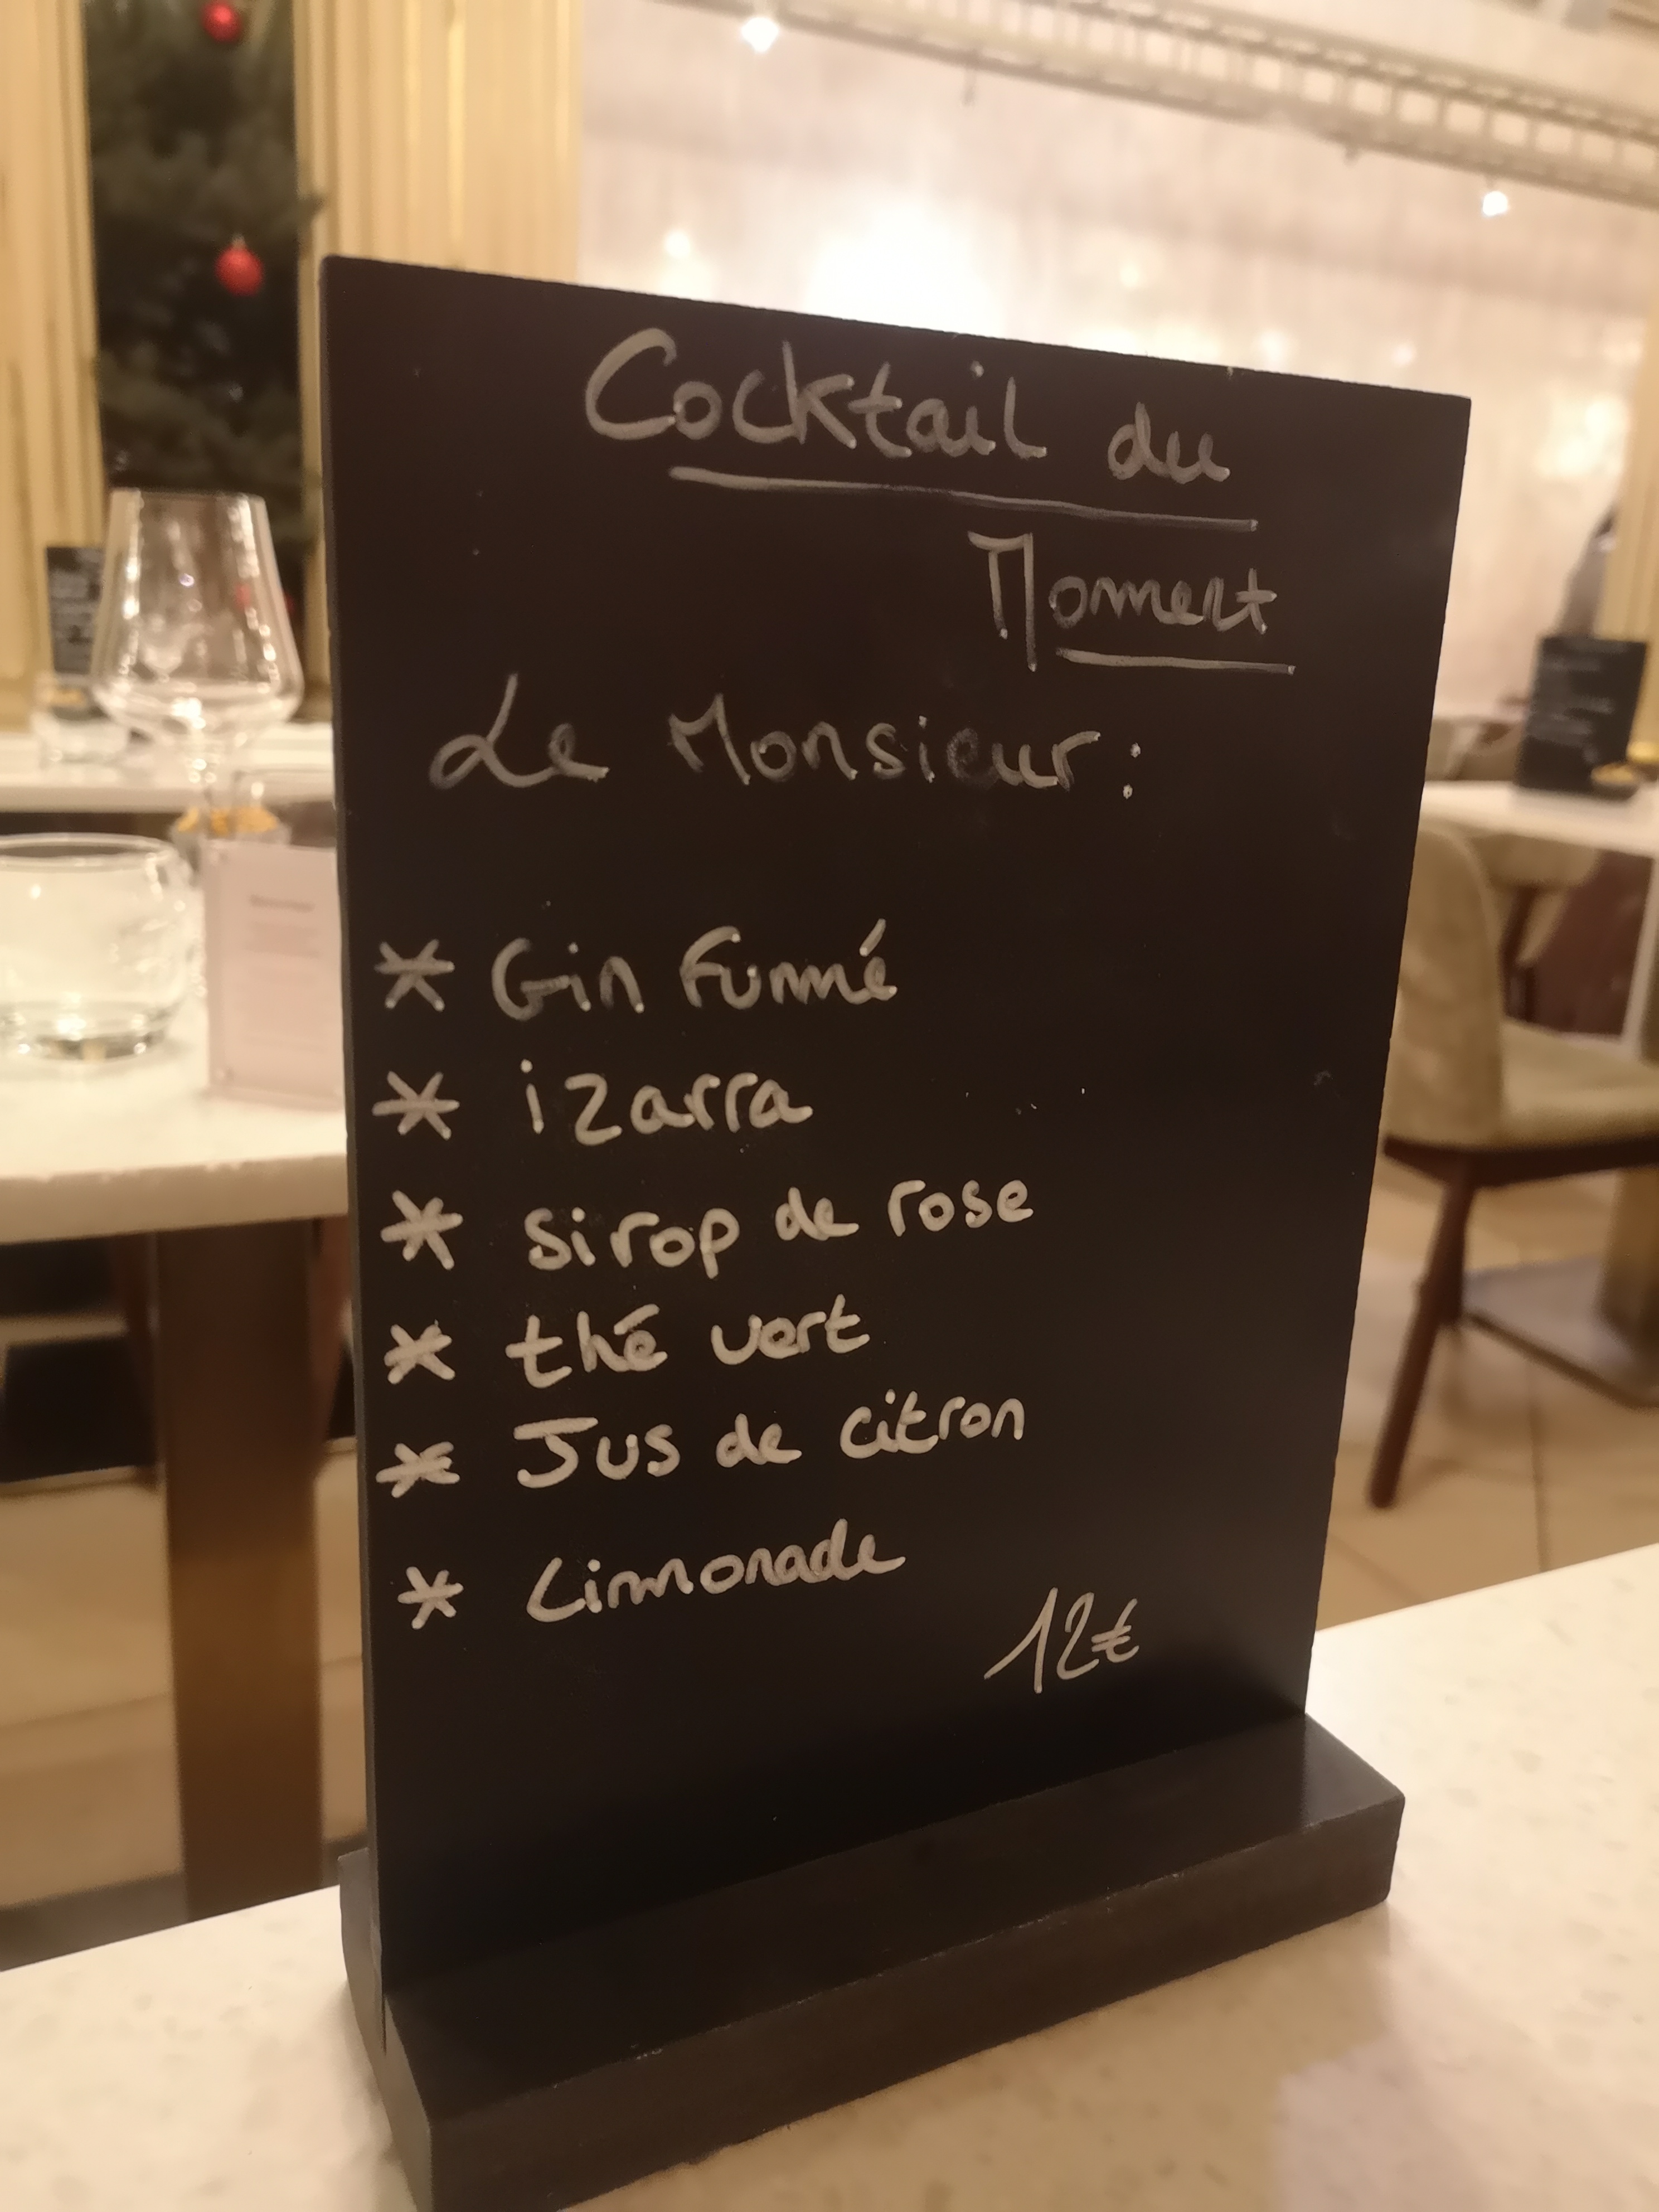 Cocktail du
Moment
Le Monsieur :
* Gin Fumé
* izarra
* sirop de rose
* thé vert
* Jus de citron
* Limonade
12€